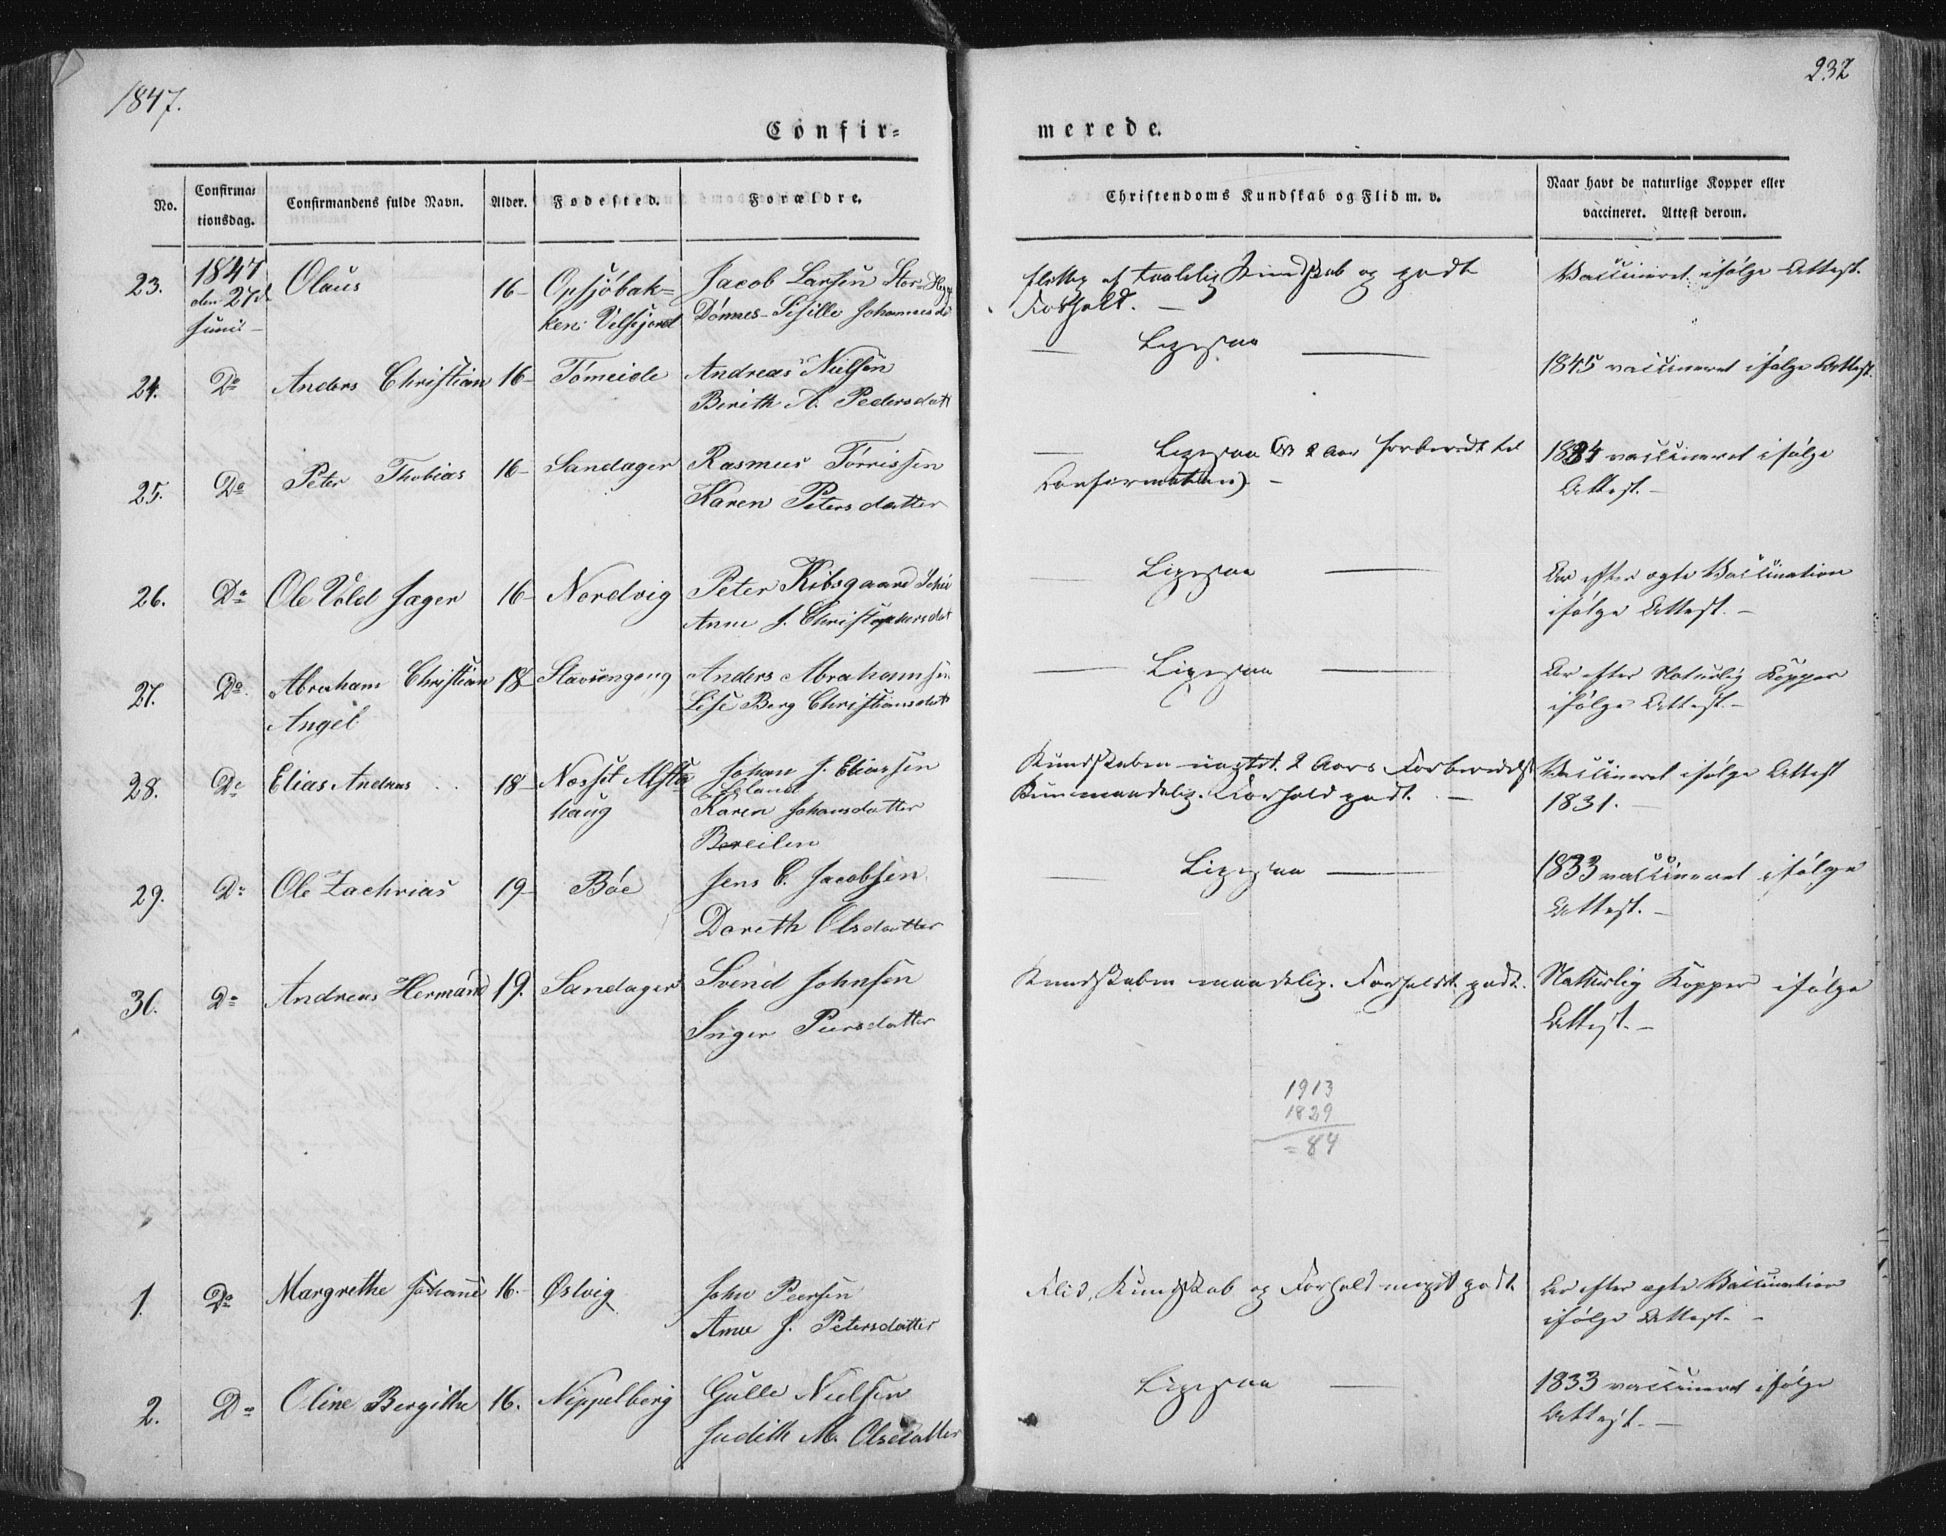 1847.
232
Confir=
merede.
No.
Confirma=
tionsdag.
Confirmandens fulde Navn.
Alder.
Fødested.
Forældre.
Christendoms Kundskab og Flid m. v.
Naar havt de naturlige Kopper eller
vaccineret. Attest derom.
23.
1847
den 27d
Juni
Olaus
16
Opsjøbak=
ken: Velfjord
Jacob Larsen
Dønnes - Sisille Johannesd
Flittig af taalelig Kundskab og godt
Forhold. —
Vaccineret ifølge Attest.
24.
Do
Anders Christian
16
Tømeide
Andreas Nielsen
Birith A. Pedersdatt
— Ligesaa —
1845 vaccineret ifølge Attest.
25.
Do
Peter Thobias
16
Sandager
Rasmus Tørrissen
Karen Petersdatter
— Ligesaa (Er 2 Aar forberedt til
Confirmation) —
1834 vaccineret ifølge
Attest. —
26.
Do
Ole Vold Jæger
16
Nordvig
Peter Kibsgaard
Anne J. Christophersdat
— Ligesaa —
Ar efter ægte Vaccination
ifølge Attest. —
27.
Do
Abraham Christian
Angel
18
Anders Abrahamsen
Lise Berg Christiansdat
— Ligesaa —
Ar efter Naturlig Kopper
ifølge Attest. —
28.
Do
Elias Andreas
18
Næsset Alsta
haug
Johan J. Eliassen
Leland
Karen Johansdatter
Kundskaben uagtet 2 Aars Forberedelse
Kun maadelig. Forhold godt. —
Vaccineret ifølge Attest
1831. —
29.
Do
Ole Zachrias
19
Bøe
Jens C. Jacobsen
Doreth Olsdatter
— Ligesaa —
1833 vaccineret ifølge
Attest. —
30.
Do
Andreas Hermand
19.
Sandager
Svend Johnsen
Inger Peersdatter
Kundskaben maadelig. Forholdt godt.
Naturlig Kopper ifølge
Attest. —
1913
1829
= 84
1.
Do
Margrethe Johane
16.
Østvig
John Peersen
Anne J. Petersdatter
Flid, Kundskab og Forhold meget godt
Ar efter ægte Vaccination
ifølge Attest. —
2.
Do
Oline Bergitha
16.
Nippelberg
Gulle Nielsen
Judith M. Olsdatter
Ligesaa —
1833 vaccineret ifølge
Attest. —